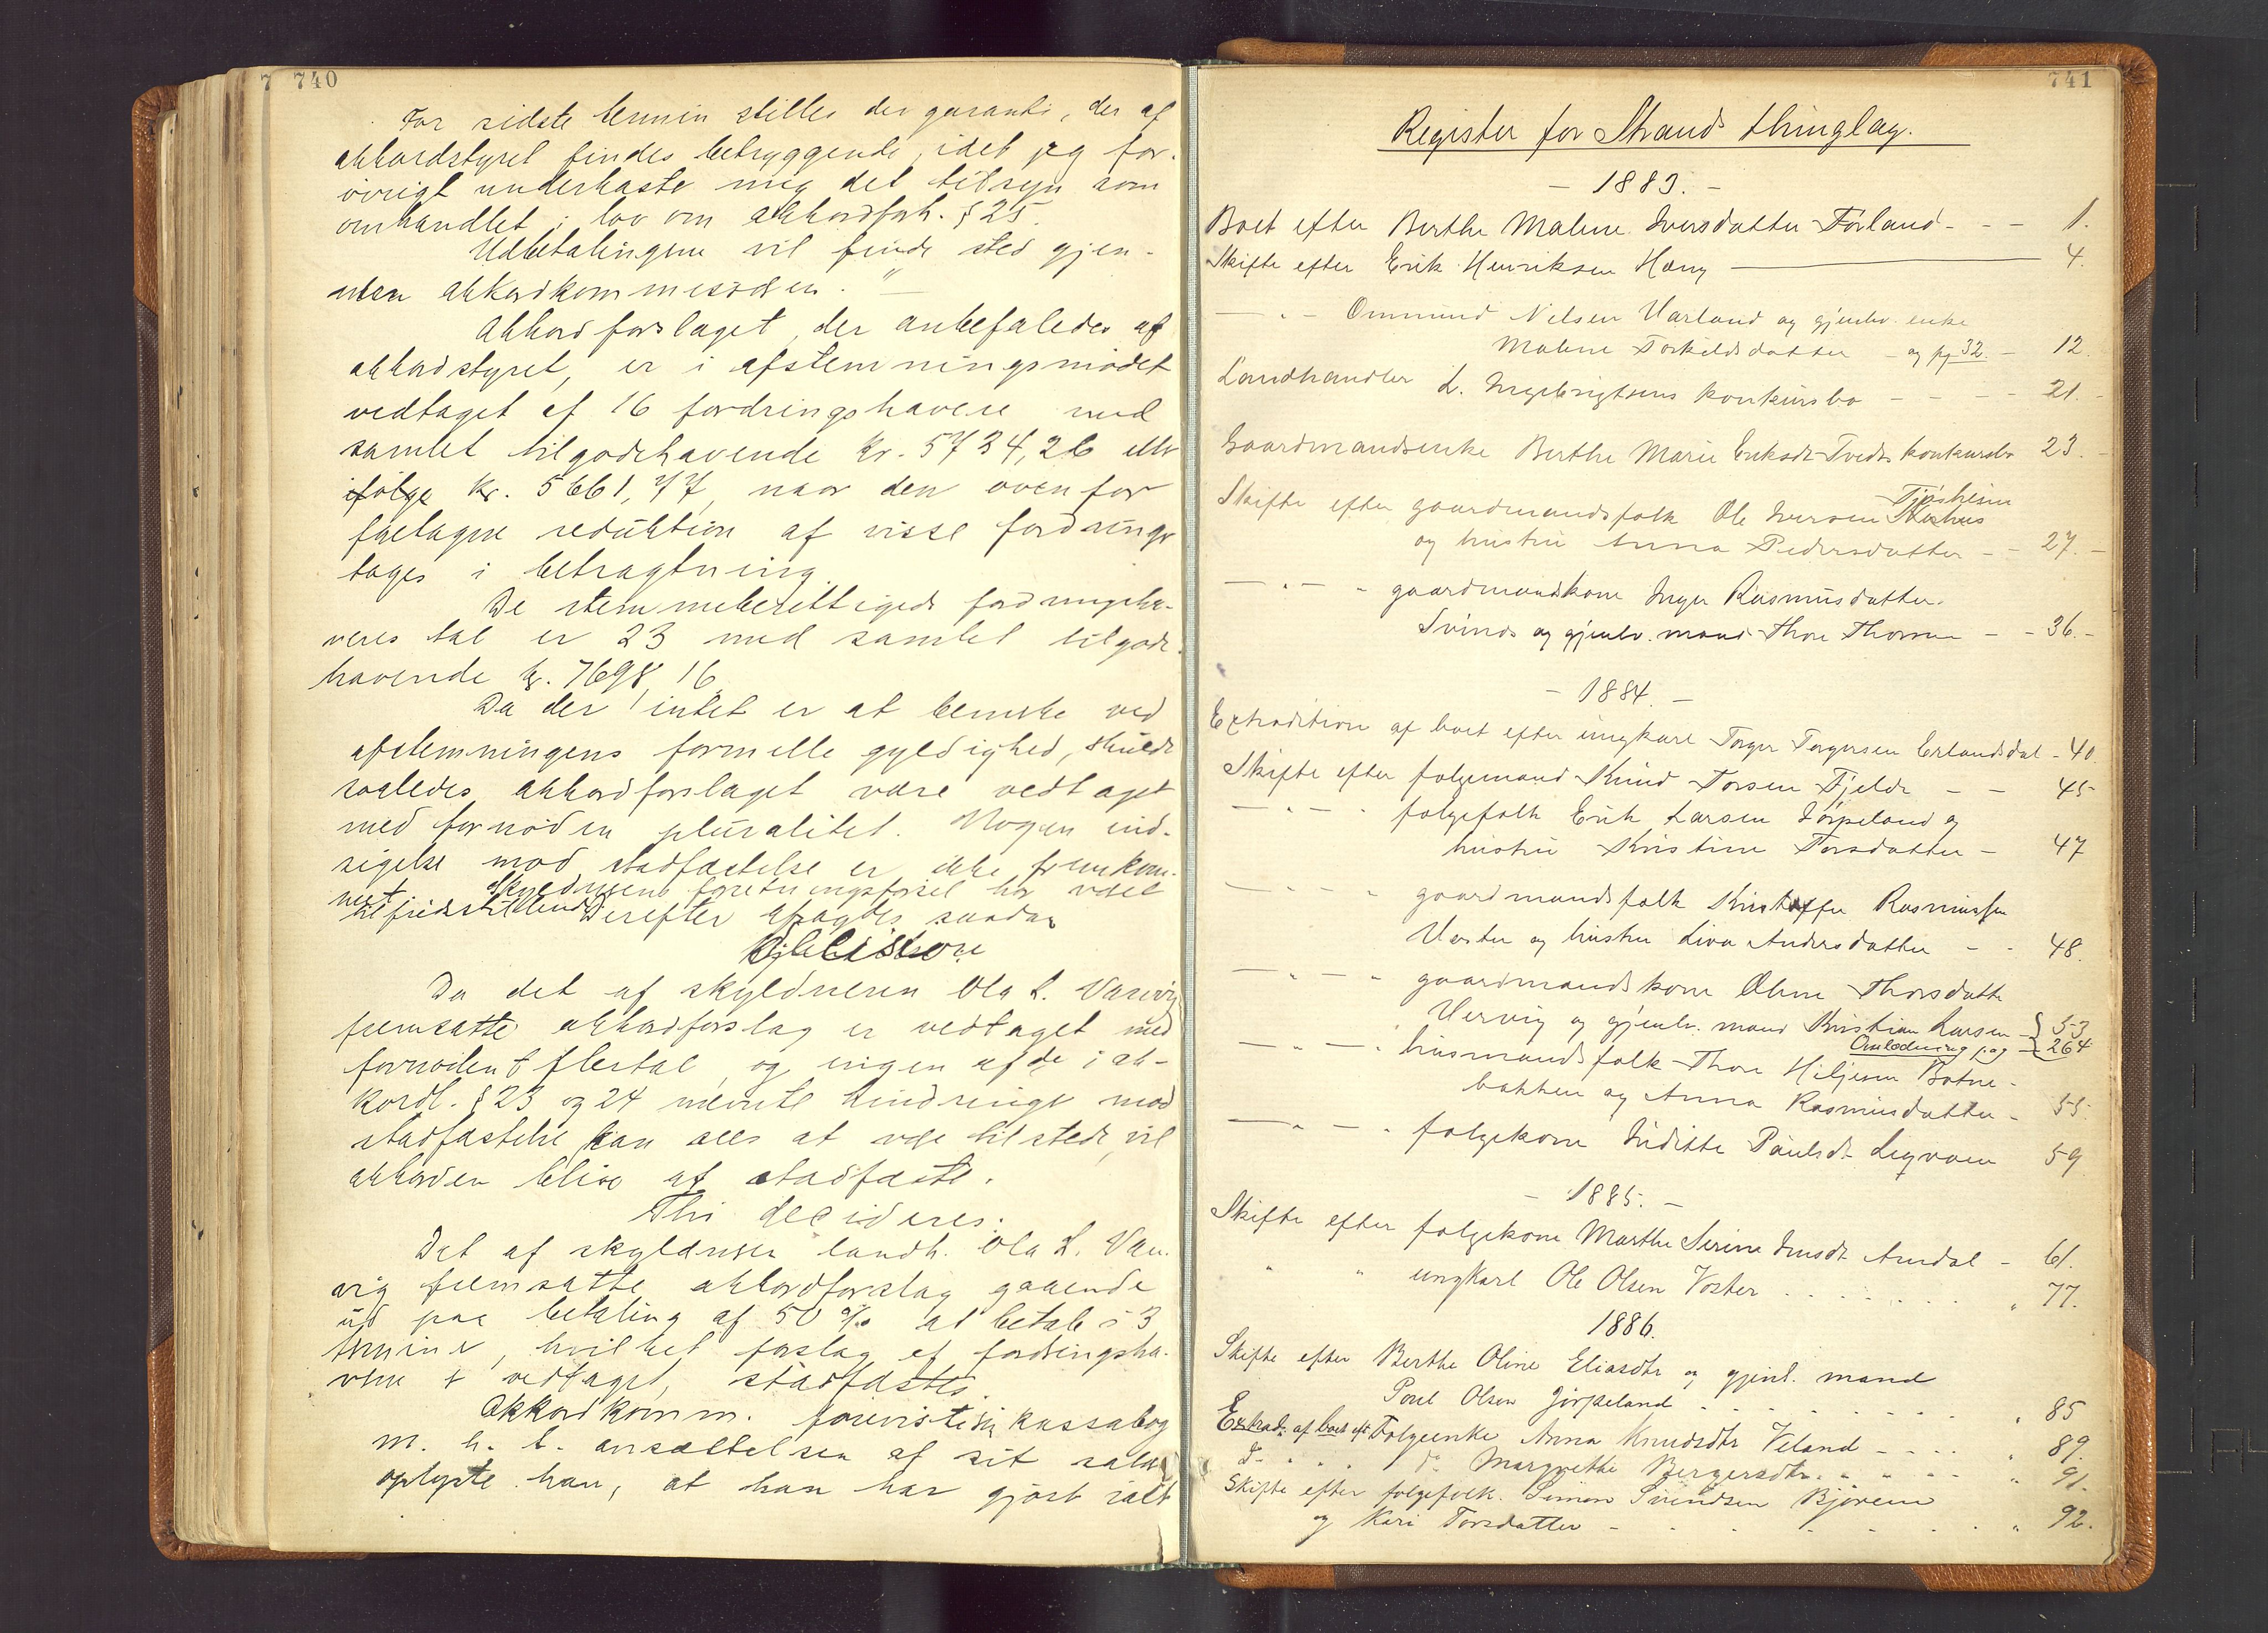 740
For sidste termin stilles der garanti, der af
akkordstyret findes betryggende, idet jeg for-
øvrigt underkaste mig det tilsyn som
omhandlet i lov om akkordforh. § 25.
Udbetalingene vil finde sted gjen-
nem akkordkommissæren. "
Akkordforslaget, der anbefaledes af
akkordstyret, er i afstemningsmødet
vedtaget af 16 fordringshavere med
samlet tilgodehavende kr. 5734,26 eller
ifølge kr. 5661,77, naar den ovenfor
foretagne reduktion af visse fordringer
tages i betragtning.
De stemmeberettigede fordringsha-
veres tal er 23 med samlet tilgode-
havende kr. 7698,16.
Da der intet er at bemerke ved
afstemningens formelle gyldighed, skulde
saaledes akkordforslaget være vedtaget
med fornøden pluralitet. Nogen ind-
sigelse mod stadfæstelse er ikke fremkom-
met. Skyldnerens forretningsførsel har været
tilfredsstillende. Derefter afsagdes saadan
Decision
Da det af skyldneren Ola L. Vanvig
fremsatte akkordforslag er vedtaget med
fornødent flertal, og ingen af de i ak-
kordl. § 23 og 24 nævnte hindringer mod
stadfæstelse kan sees at være tilstede, vil
akkorden blive at stadfæste.
Thi decideres:
Det af skyldneren landh. Ola L. Van-
vig fremsatte akkordforslag gaaende
ud paa betaling af 50 % at betale i 3
terminer, hvilket forslag af fordringsha-
verne er vedtaget, stadfæstes.
Akkordkomm. foreviste sin kassabog
m. h. t. ansættelsen af sit salær
oplyste han, at han har gjort ialt
741
Register for Strands thinglag.
- 1883. -
Boet efter Berthe Malene Iversdatter Førland - - - 1.
Skifte efter Erik Henriksen Hæng — 4.
— " — Ommund Nilsen Varland og gjenlev. enke
Malene Torkildsdatter - og pg 32. - 12.
Landhandler L. Ingebrigtsens konkursbo - - - - 21. -
Gaardmandsenke Berthe Marie Eriksdr Tveds konkursbo 23. -
Skifte efter gaardmandsfolk Ole Iversen Tjøsheim
og hustru Anna Pedersdatter - - 27. -
— " — - gaardmandskone Inger Rasmusdatter
Svines og gjenlv. mand Thore Thorsen - - 36. -
- 1884. -
Extradition af boet efter ungkarl Torger Torgersen Erlandsdal - 40.
Skifte efter folgemand Knud Torsen Fjelde - - 45
— " — - folgefolk Erik Larsen Jørpeland og
hustru Kristine Torsdatter - 47
— " — - gaardmandsfolk Kristoffer Rasmussen
Voster og hustru Liva Andersdatter - - 48.
— " — - gaardmandskone Oline Thorsdatter
Vervig og gjenlv. mand Kristian Larsen - } 53
Omlodning pag - 264
— " — - husmandsfolk Thore Hiljesen Botne-
bakken og Anna Rasmusdatter - 55.
— " — - folgekone Juditte Paulsdr Leqvam 59
- 1885. -
Skifte efter folgekone Marthe Serine Jensdr Amdal - 61.
" " ungkarl Ole Olsen Voster . . . . . . " 77.
1886.
Skifte efter Berthe Oline Eliasdtr og gjenl. mand
Poul Olsen Jørpeland . . . . . . . " 85
Extrad: af boet eft. Folgeenke Anna Knudsdtr Veland - - - - " 89.
do " " " do Margrethe Bergersdtr. " " " " " 91.
Skifte efter folgefolk. Simon Svendsen Bjøreim
og Kari Torsdatter - . . . . . . " 92.